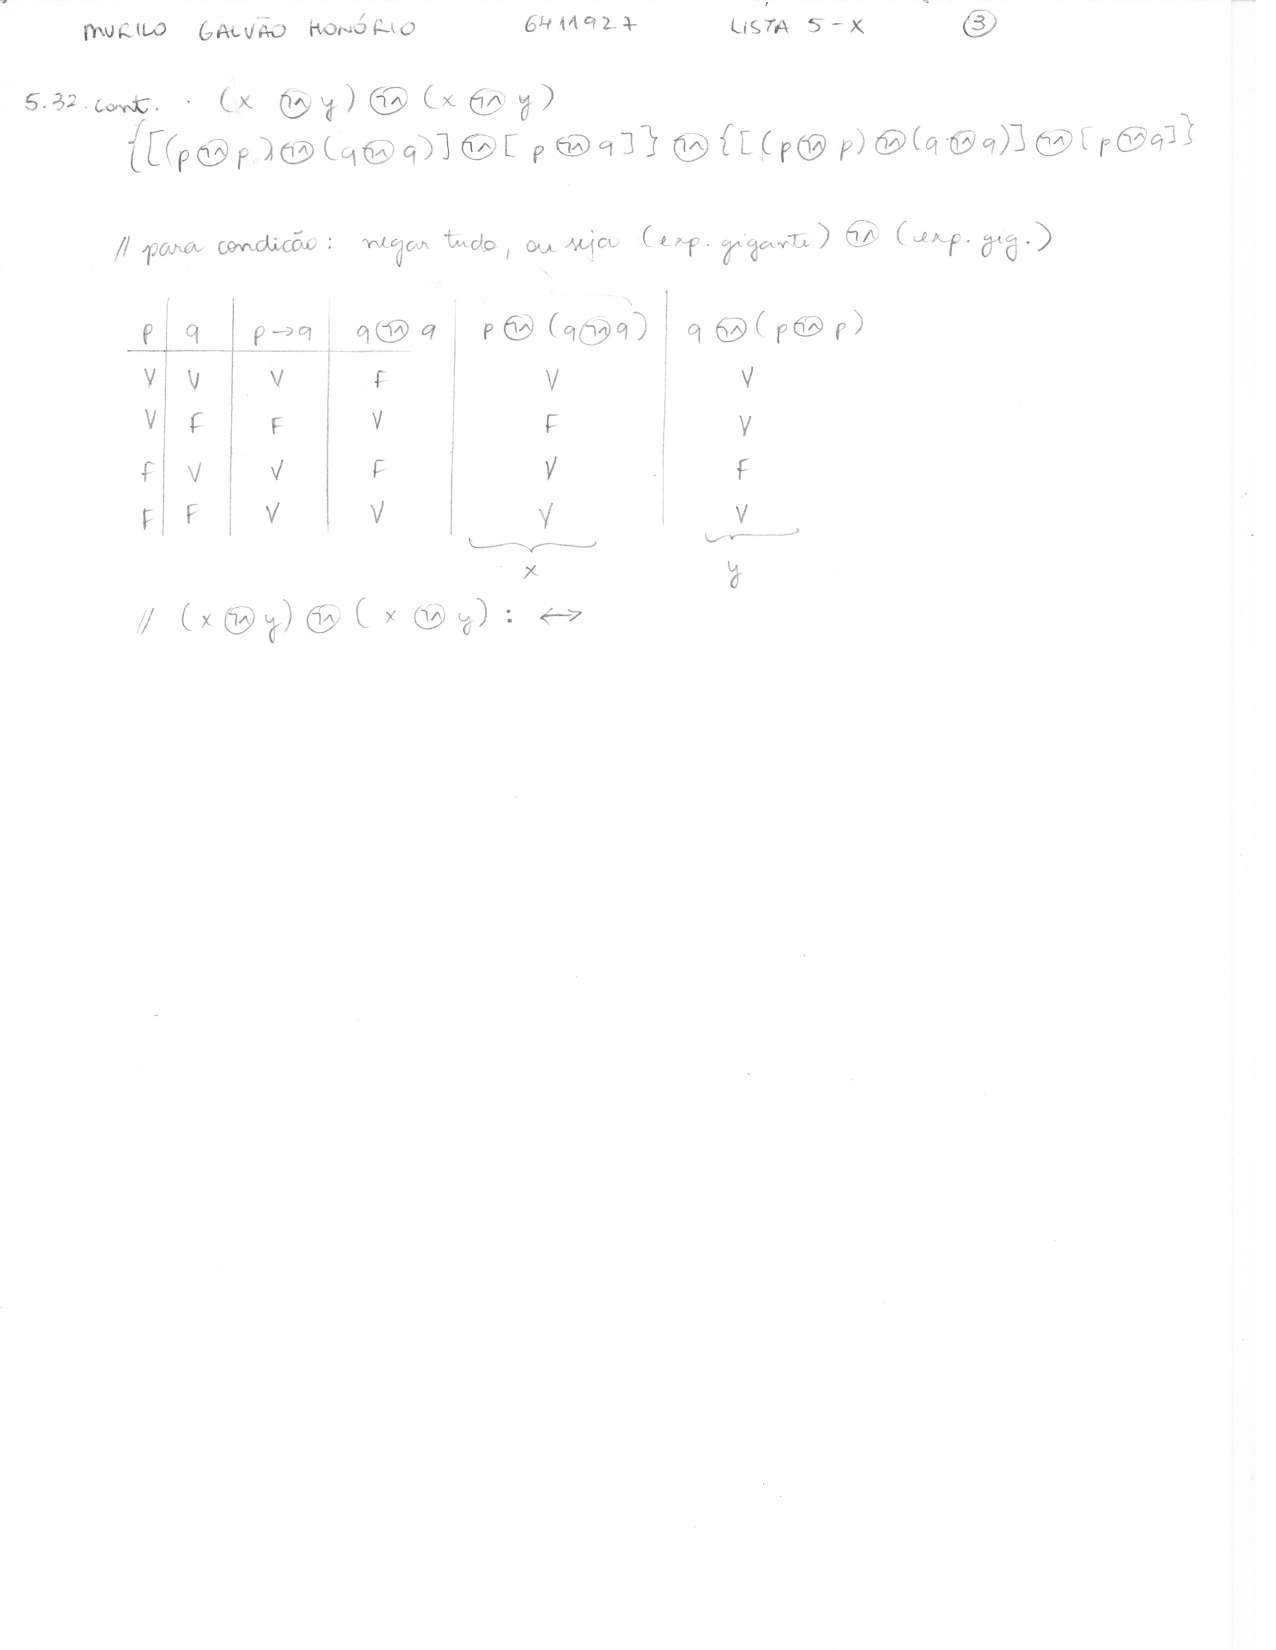 MURILO GALVÃO HONÓRIO 6411927 LISTA 5-X ③
5.32. cont. · (x ⓝ∧ y) ⓝ∧ (x ⓝ∧ y)
{[(p ¬∧ p) ¬∧ (q ¬∧ q)] ¬∧ [p ¬∧ q]} ¬∧ {[(p ¬∧ p) ¬∧ (q ¬∧ q)] ¬∧ [p ¬∧ q]}
// para condicão: negar tudo, ou seja (exp. gigante) ¬∧ (exp. gig.)
p q p→q q ¬∧ q p ¬∧ (q ¬∧ q) q ¬∧ (p ¬∧ p)
V V V F V V
V F F V F V
F V V F V F
F F V V V V
x y
// (x ¬∧ y) ¬∧ (x ¬∧ y) : ↔